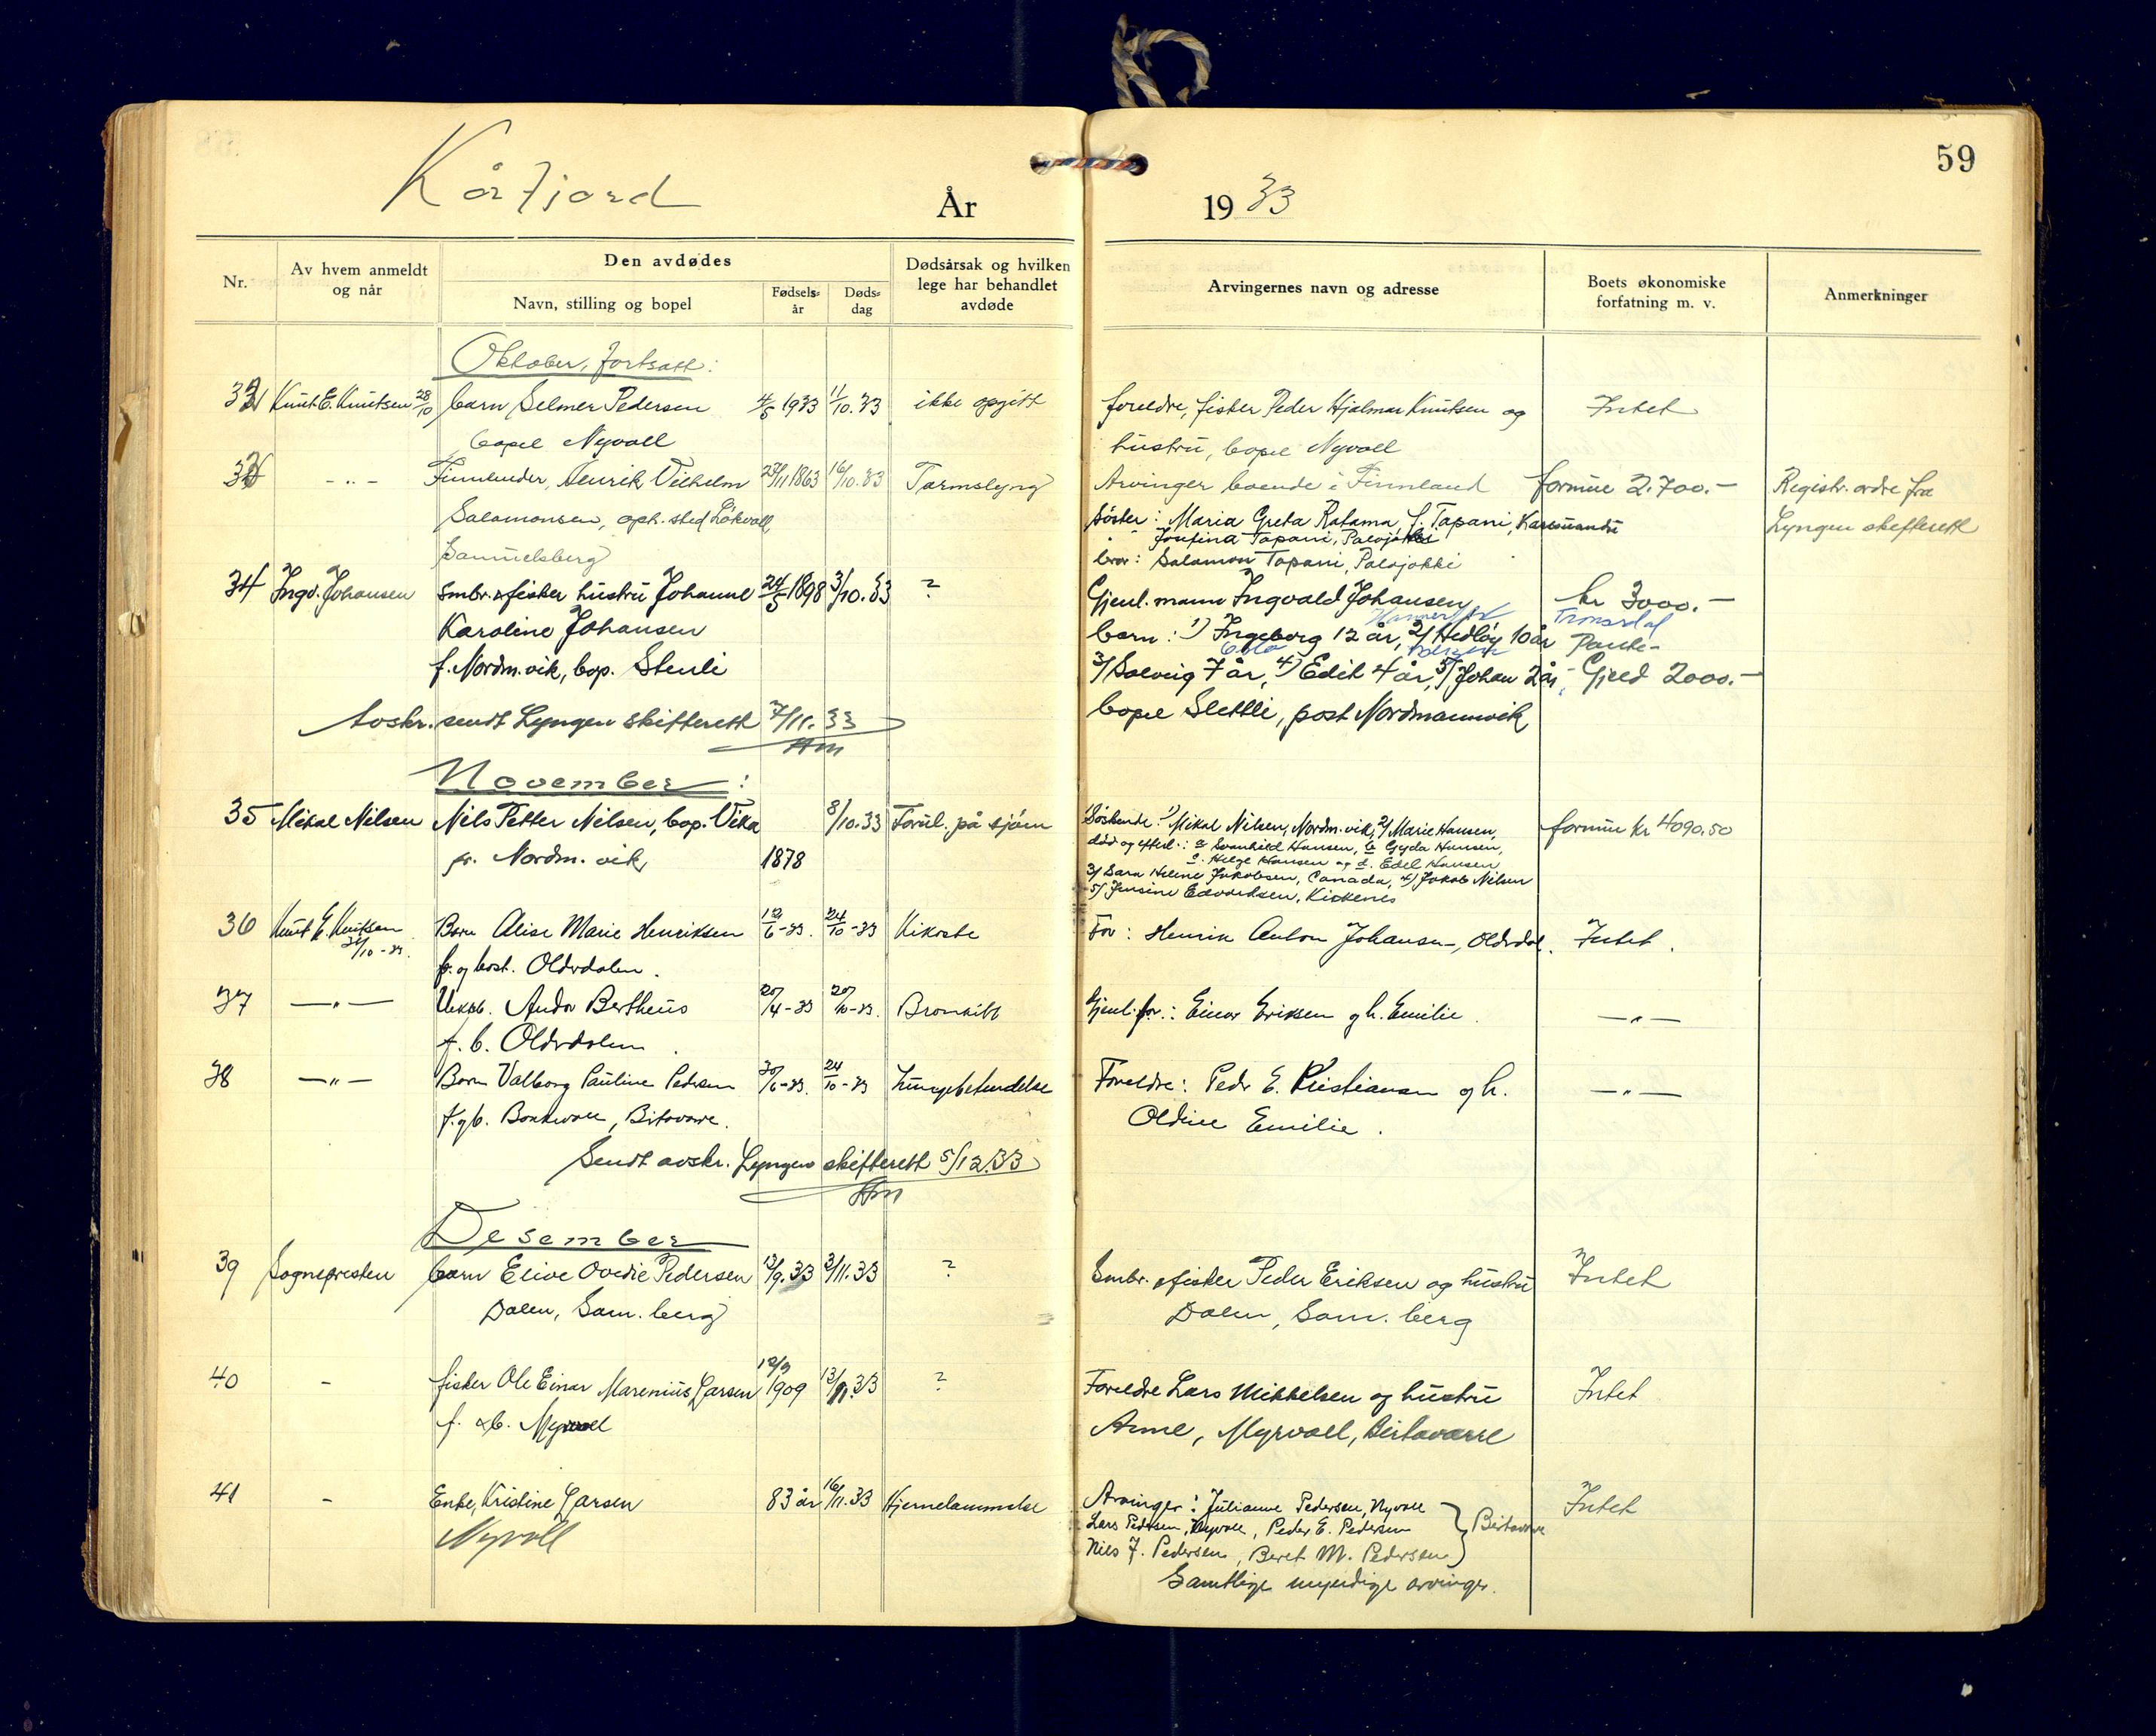 59
Kåfjord
År 1933
Nr.
Av hvem anmeldt og når
Den avdødes
Navn, stilling og bopel
Fødselsår
Dødsdag
Dødsårsak og hvilken lege har behandlet avdøde
Arvingernes navn og adresse
Boets økonomiske forfatning m. v.
Anmerkninger
Oktober, fortsatt:
Knut E. Knutsen 28/10 barn Selmer Pedersen 4/5 1933 11/10.33 ikke opgitt foreldre, fisker Peder Hjalmar Knutsen og Intet
bopel Nyvoll hustru, bopel Nyvoll
-"- Finnlender, Henrik Vilhelm 23/11 1863 16/10.33 Tarmslyng Arvinger boende i Finnland formue 2.700.- Registr. ordre fra
Salamonsen, oph. sted Løkvoll, søster: Maria Greta Ratama, f. Tapani, Karesuando Lyngen skifterett
" Josefina Tapani, Palojokki
Samuelsberg bror: Salamon Tapani, Palojokki
34 Ingv. Johansen Smbr. & fisker hustru Johanne 24/5 1898 3/10.33 ? Gjenl. mann Ingvald Johansen, kr 3000.-
Karoline Johansen barn: 1) Ingeborg 12 år, 2/ Hedløy 10 år Pante-
f. Nordm.vik, bop. Stenli 3/ Solveig 7 år, 4) Edit 4 år, 5/ Johan 2 år, Gjeld 2000.-
Avskr. sendt Lyngen skifterett 7/11.33 bopel Slettli, post Nordmannvik
November:
35 Mikal Nilsen Nils Petter Nilsen, bop. Vika 8/10.33 Forul. på sjøen Søskende: 1) Mikal Nilsen, Nordm.vik, 2/ Marie Hansen, formue kr 4090.50
pr. Nordm.vik, 1878 død og efterl.: a Svanhild Hansen, b Gyda Hansen,
c. Helge Hansen og d. Edel Hansen
3/ Sara Helene Jakobsen, Canada, 4) Jakob Nilsen
5/ Jensine Edvardsen, Kirkenes
36 Knut E. Knutsen Barn Alise Marie Henriksen 12/6-33 24/10-33 Kikoste Far: Henrik Anton Johansen, Olderdal. Intet.
31/10-33.
f. og bost. Olderdalen.
37 -"- Andor Bertheus 20/4-33 20/10-33. Bronkitt Gjenl. for.: Einar Eriksen og h. Emilie. -"-
f. b. Olderdalen.
38 -"- Barn Valborg Pauline Pedersen 30/6-33. 24/10-33 Lungebetendelse Foreldre: Peder E. Kristiansen og h. -"-
f. og b. Birtavarre. Oldine Emilie.
Sendt avskr. Lyngen skifterett 5/12.33
Desember
39 Sognepresten barn Elive Ovedie Pedersen 13/9.33 2/11.33 ? Smbr. & fisker Peder Eriksen og hustru Intet
Dalen, Sam.berg Dalen, Sam.berg
40 - fisker Ole Einar Marenius Larsen 12/9 1909 13/11.33 ? Foreldre Lars Mikkelsen og hustru Intet
f. & b. Myrvoll Anne, Myrvoll, Birtavarre
41 - Enke, Kristine Larsen 83 år 16/11.33 Hjernelammelse Arvinger: Julianne Pedersen, Nyvoll Intet
Nyvoll Lars Pedersen, Nyvoll, Peder E. Pedersen Birtavarre
Nils J. Pedersen, Beret M. Pedersen
Samtlige myndige arvinger.